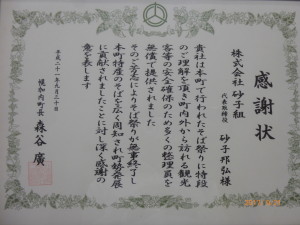 感謝状
株式会社 砂子組
代表取締役 砂子邦弘様
貴社は本町で行われたそば祭りに特段
のご理解を頂き町内外から訪れる観光
客等の安全確保のため多くの整理員を
無償で提供されました
そのご芳志によりそば祭りが無事終了し
本町特産のそばを広く周知され町勢発展
に貢献されましたことに対し深く感謝の
意を表します
平成二十一年九月二十日
幌加内町長 森谷 廣